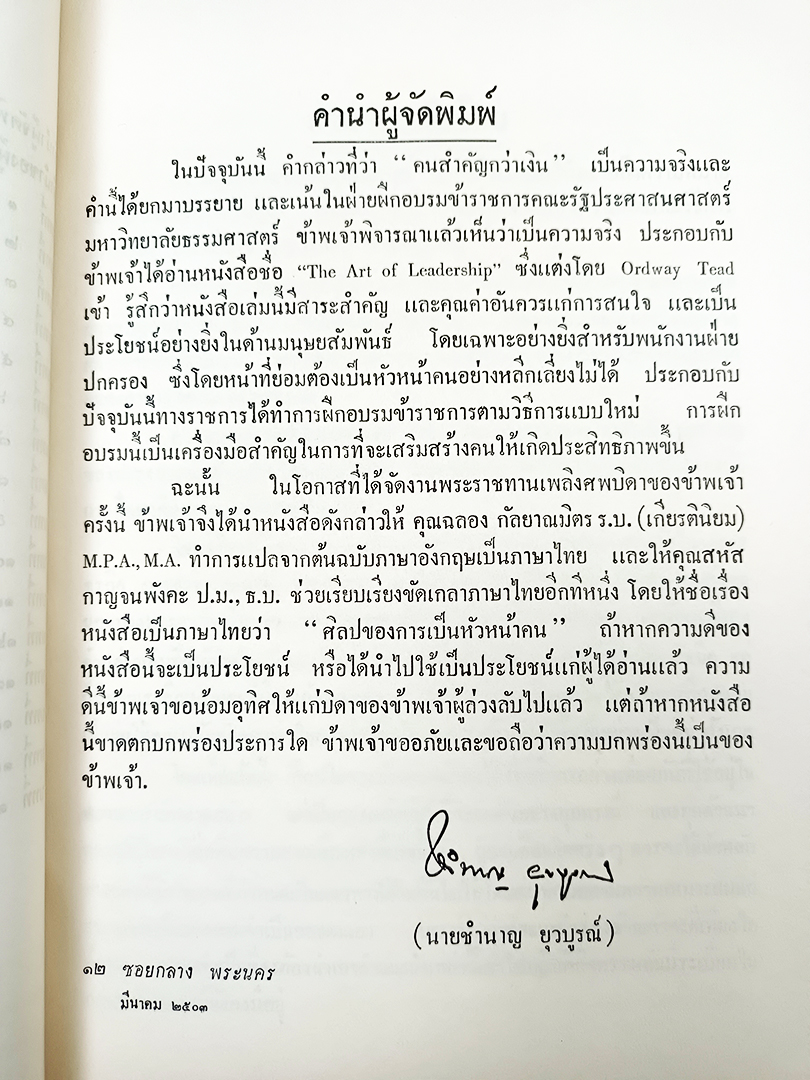 คำนำผู้จัดพิมพ์
ในปัจจุบันนี้ คำกล่าวที่ว่า “คนสำคัญกว่าเงิน” เป็นความจริงและ
คำนี้ได้ยกมาบรรยาย และเน้นในฝ่ายฝึกอบรมข้าราชการคณะรัฐประศาสนศาสตร์
มหาวิทยาลัยธรรมศาสตร์ ข้าพเจ้าพิจารณาแล้วเห็นว่าเป็นความจริง ประกอบกับ
ข้าพเจ้าได้อ่านหนังสือชื่อ “The Art of Leadership” ซึ่งแต่งโดย Ordway Tead
เข้า รู้สึกว่าหนังสือเล่มนี้มีสาระสำคัญ และคุณค่าอันควรแก่การสนใจ และเป็น
ประโยชน์อย่างยิ่งในด้านมนุษยสัมพันธ์ โดยเฉพาะอย่างยิ่งสำหรับพนักงานฝ่าย
ปกครอง ซึ่งโดยหน้าที่ย่อมต้องเป็นหัวหน้าคนอย่างหลีกเลี่ยงไม่ได้ ประกอบกับ
ปัจจุบันนี้ทางราชการได้ทำการฝึกอบรมข้าราชการตามวิธีการแบบใหม่ การฝึก
อบรมนี้เป็นเครื่องมือสำคัญในการที่จะเสริมสร้างคนให้เกิดประสิทธิภาพขึ้น
ฉะนั้น ในโอกาสที่ได้จัดงานพระราชทานเพลิงศพบิดาของข้าพเจ้า
ครั้งนี้ ข้าพเจ้าจึงได้นำหนังสือดังกล่าวให้ คุณฉลอง กัลยาณมิตร ร.บ. (เกียรตินิยม)
M.P.A., M.A. ทำการแปลจากต้นฉบับภาษาอังกฤษเป็นภาษาไทย และให้คุณสหัส
กาญจนพังคะ ป.ม., ธ.บ. ช่วยเรียบเรียงขัดเกลาภาษาไทยอีกทีหนึ่ง โดยให้ชื่อเรื่อง
หนังสือเป็นภาษาไทยว่า “ศิลปของการเป็นหัวหน้าคน” ถ้าหากความดีของ
หนังสือนี้จะเป็นประโยชน์ หรือได้นำไปใช้เป็นประโยชน์แก่ผู้ได้อ่านแล้ว ความ
ดีนี้ข้าพเจ้าขอน้อมอุทิศให้แก่บิดาของข้าพเจ้าผู้ล่วงลับไปแล้ว แต่ถ้าหากหนังสือ
นี้ขาดตกบกพร่องประการใด ข้าพเจ้าขออภัยและขอถือว่าความบกพร่องนี้เป็นของ
ข้าพเจ้า.
(นายชำนาญ ยุวบูรณ์)
๑๒ ซอยกลาง พระนคร
มีนาคม ๒๕๐๓